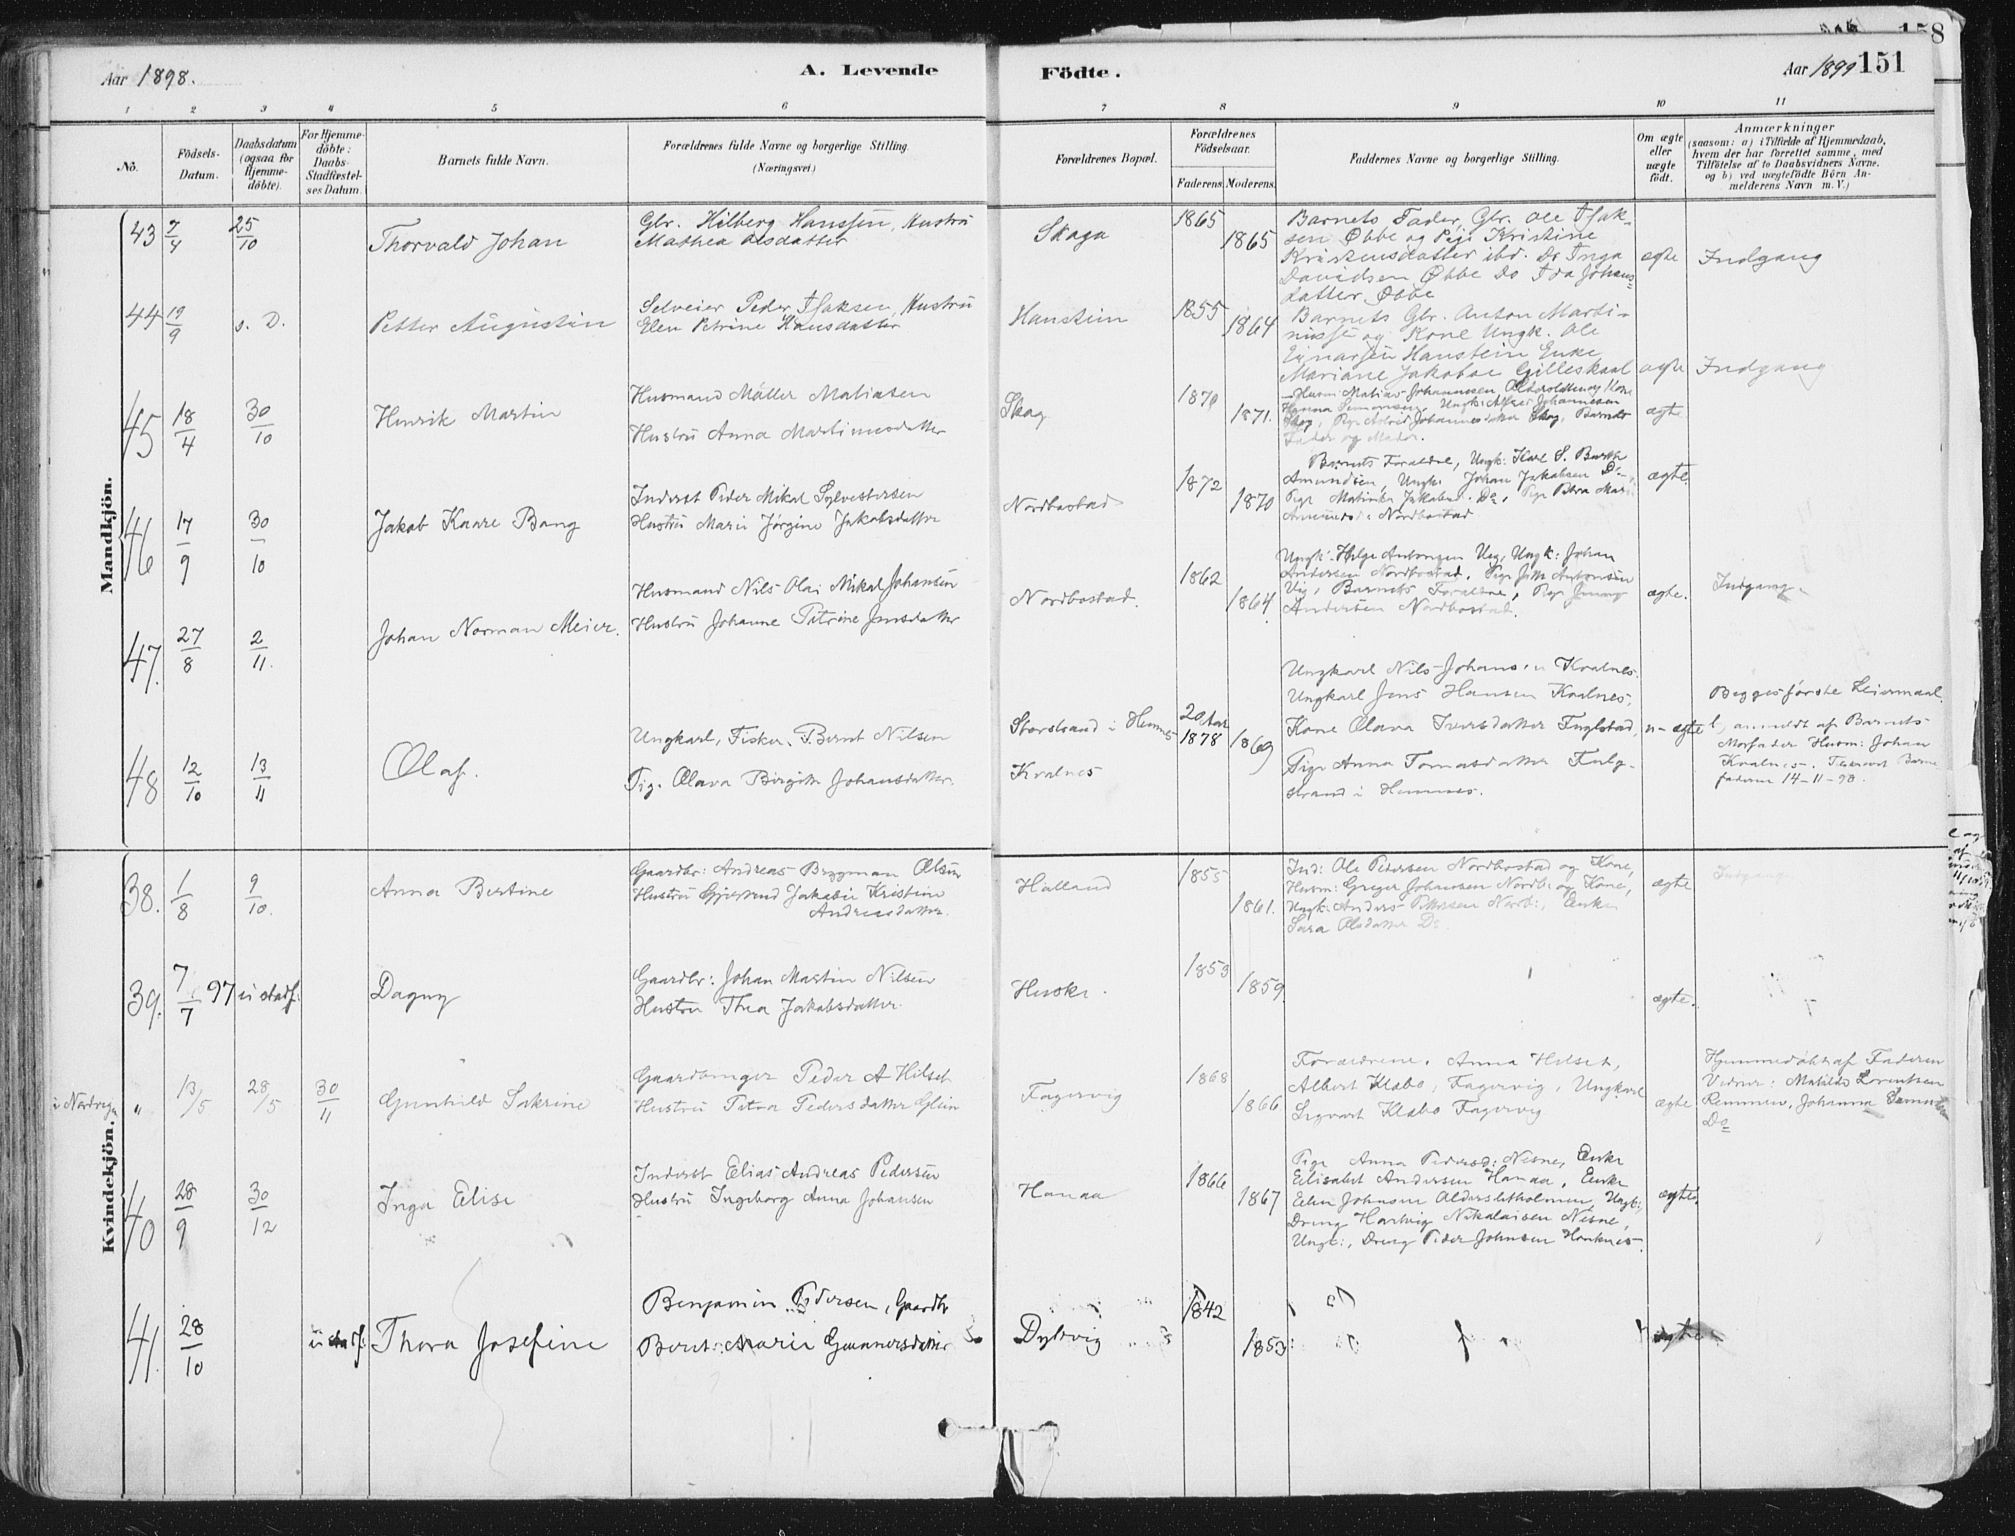 Aar 1898.
A. Levende
Födte.
Aar 1899
151
158
1 2 3 4 5 6 7 8 9 10 11
No.
Födsels-Datum.
Daabsdatum (ogsaa for Hjemme-döbte).
For Hjemme-döbte: Daabs-Stadfæstel-ses Datum.
Barnets fulde Navn.
Forældrenes fulde Navne og borgerlige Stilling. (Næringsvei.)
Forældrenes Bopæl.
Forældrenes Födselsaar.
Faderens. Moderens.
Faddernes Navne og borgerlige Stilling.
Om ægte eller uægte födt.
Anmærkninger
(saasom: a) i Tilfælde af Hjemmedaab,
hvem der har forrettet samme, med
Tilföielse af to Daabsvidners Navne,
og b) ved uægtefödte Börn An-
melderens Navn m. V.)
Mandkjön.
43 7/4 25/10 Thorvald Johan
Gbr. Hilberg Hanssen, Hustru
Mathea Olsdatter
Skaga 1865 1865
Barnets Fader, Gbr. Ole Isak-
sen Øbbe og Pige Kristine
Kristensdatter ibd. Do Inga
Davidsen Øbbe Do Ida Johans-
datter Øbbe
ægte Indgang
44 19/9 s. D. Petter Augustin
Selveier Peder Isaksen, Hustru
Elen Petrine Hansdatter
Hanstein 1855 1864
Barnets Gbr. Anton Marti-
nussen og Kone Ungk. Ole
Einarsen Hanstein Enke
Mariane Jakobæ Gilleskaal
ægte Indgang
45 18/4 30/10 Henrik Martin
Husmand Möller Matiasen
Hustru Anna Martinusdatter
Skog 1870 1871.
Husm: Matias Johannesen og Kone
Hanna Simonsen, Ungk: Johannesen
Skog, Pige Johannesdatter Skog, Barnets
Fader og Moder.
ægte
46 17/9 30/10 Jakob Kaare Bang
Inderst Peder Mikal Sylvestersen
Hustru Marie Jørgine Jakobsdatter
Nordbostad 1872 1870
Barnets Forældre, Ungk: Karl S. Barth
Amundsen, Ungk: Johan Jakobsen Do,
Pige Matinka Jakobsd. Do, Pige Petra Mari
Amundsd: Nordbostad
ægte.
47. 27/8 2/11. Johan Norman Meier.
Husmand Nils Olai Mikal Johansen
Hustru Johanne Petrine Jensdatter
Nordbostad. 1862 1864
Ungk: Helge Antonsen Vig, Ungk: Johan
Andersen Nordbostad. Pige Antonsen
Vig, Barnets Forældre, Pige Jenny
Andersen Nordbostad.
ægte. Indgang.
48 12/10 13/11 Olaf.
Ungkarl, Fisker, Bernt Nilsen
Pig. Olava Birgitte Johansdatter.
Storstrand i Hemnes
Kvalnes
20 Aar
1878 1869
Ungkarl Nils Johansen Kvalnes.
Ungkarl Jens Hansen Kvalnes,
Kone Olava Iversdatter Fuglstad,
Pige Anna Tomasdatter Fulg-
strand i Hemnes.
u-ægte
Begges første Leiermaal,
anmeldt af Barnets
Morfader Husm: Johan
Kvalnes. Barne-
faderen 14-11-98.
Kvindekjön.
38. 1/8 9/10. Anna Bertine
Gaardbr: Andreas Bryggman Olsen
Hustru Gjertrud Jakobie Kristine
Andreasdatter.
Halland 1855 1861.
Ind: Ole Pedersen Nordbostad og Kone,
Husm: Greger Johansen Nordb: og Kone,
Ungk: Anders Pettersen Nordb:, Enke
Sara Olsdatter Do
ægte Indgang
39. 7/7 97 ei stadf: Dagny
Gaardbr: Johan Martin Nilsen
Hustru Thea Jakobsdatter.
Huske. 1853 1859 ægte.
i Nordvigen „ 13/5 28/5 30/11 Gunhild Sakrine
Gaardbruger Peder A Hilset
Hustru Petra Pedersdatter Glein
Fagervig 1868 1866
Forældrene. Anna Hilset,
Albert Klæbo, Fagervig, Ungkarl
Sigvart Klæbo Fagervig
ægte
Hjemmedöbt af Faderen
Vidner: Matilde Lorentsen
Remmen, Johanna
Do
40 28/9 30/12 Inga Elise
Inderst Elias Andreas Pedersen
Hustru Ingeborg Anna Johansen
Hanaa 1866 1867
Pige Anna Pedersd: Nesne, Enke
Elisabet Andersen Hanaa, Enke
Elen Johnsen Aldersletholmen, Ungk:
Dreng Hartvig Nikolaisen Nesne,
Ungk:, Dreng Peder Johnsen
ægte.
41. 28/10 ei stadf. Thora Josefine
Benjamin Pedersen, Gaardbr
Berit Marie Gunnersdatter
1842 1853 ægte